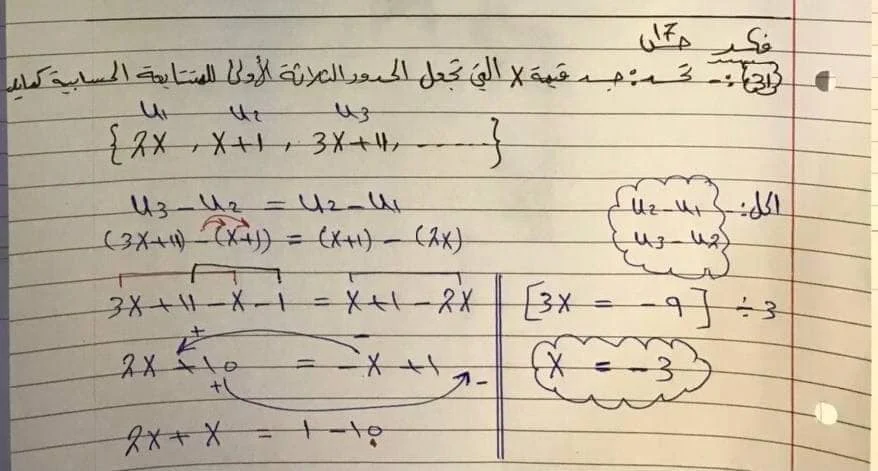 فكر ص17
(31):- تحد: جد قيمة x التي تجعل الحدود الثلاثة الأولى للمتتابعة الحسابية كما يلي
u₁ u₂ u₃
{ 2x , x+1 , 3x+11, ------ }
الحل:
u₂-u₁
u₃-u₂
u₃-u₂ = u₂-u₁
(3x+11) - (x+1) = (x+1) - (2x)
3x+11-x-1 = x+1-2x
2x+10 = -x+1
2x+x = 1-10
[3x = -9] ÷3
x = -3